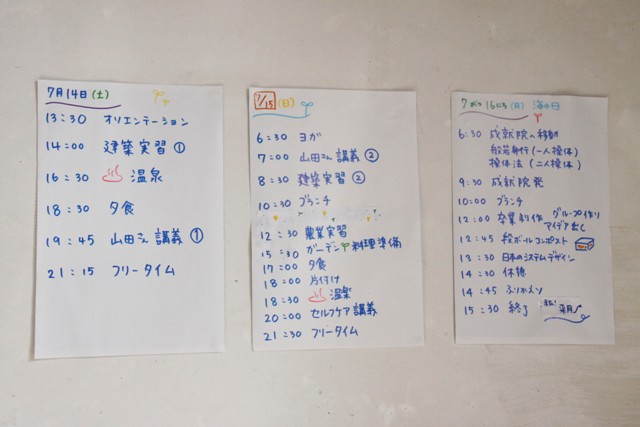 7月14日(土)
13:30 オリエンテーション
14:00 建築実習①
16:30 温泉
18:30 夕食
19:45 山田さん講義①
21:15 フリータイム
7/15(日)
6:30 ヨガ
7:00 山田さん講義②
8:30 建築実習②
10:30 ブランチ
12:30 農業実習
15:30 ガーデン 料理準備
17:00 夕食
18:00 片付け
18:30 温泉
20:00 セルフケア講義
21:30 フリータイム
7がつ16にち(月) 海の日
6:30 成就院へ移動
般若心行(一人操体)
操体法(二人操体)
9:30 成就院発
10:00 ブランチ
12:00 卒業制作 グループ作り
アイデア出し
12:45 段ボールコンポスト
13:30 日本のシステムデザイン
14:30 休憩
14:45 ふりかえり
15:30 終了 来月